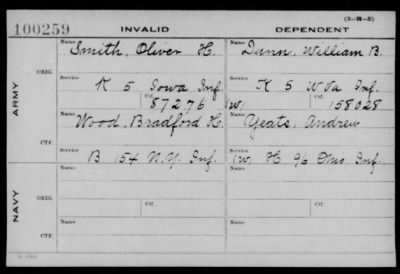 (3-M-5)
100259 INVALID DEPENDENT
Name Smith, Oliver H. Name Dunn, William B.
ARMY
ORIG.
Service K 5 Iowa Inf. Service K 5 W Va Inf.
Ctf. 87276 (W) Ctf. 158028
Name Wood, Bradford H. Name Yeats, Andrew
CTF.
Service B 154 N.Y. Inf. Service (W) H 96 Ohio Inf.
NAVY
Name Name
ORIG.
Service Ctf. Service Ctf.
Name Name
CTF.
Service Service